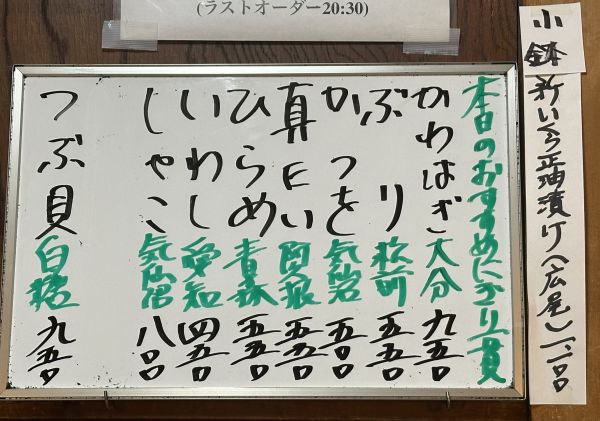 (ラストオーダー20:30)
本日のおすすめにぎり一貫
かわはぎ 大分 九五〇
ぶり 松前 五五〇
かつを 気仙沼 五〇〇
真だい 阿久根 五五〇
ひらめ 青森 五五〇
いわし 愛知 四五〇
しゃこ 気仙沼 八〇〇
つぶ貝 白糠 九五〇
小鉢
新いくら正油漬け(広尾)